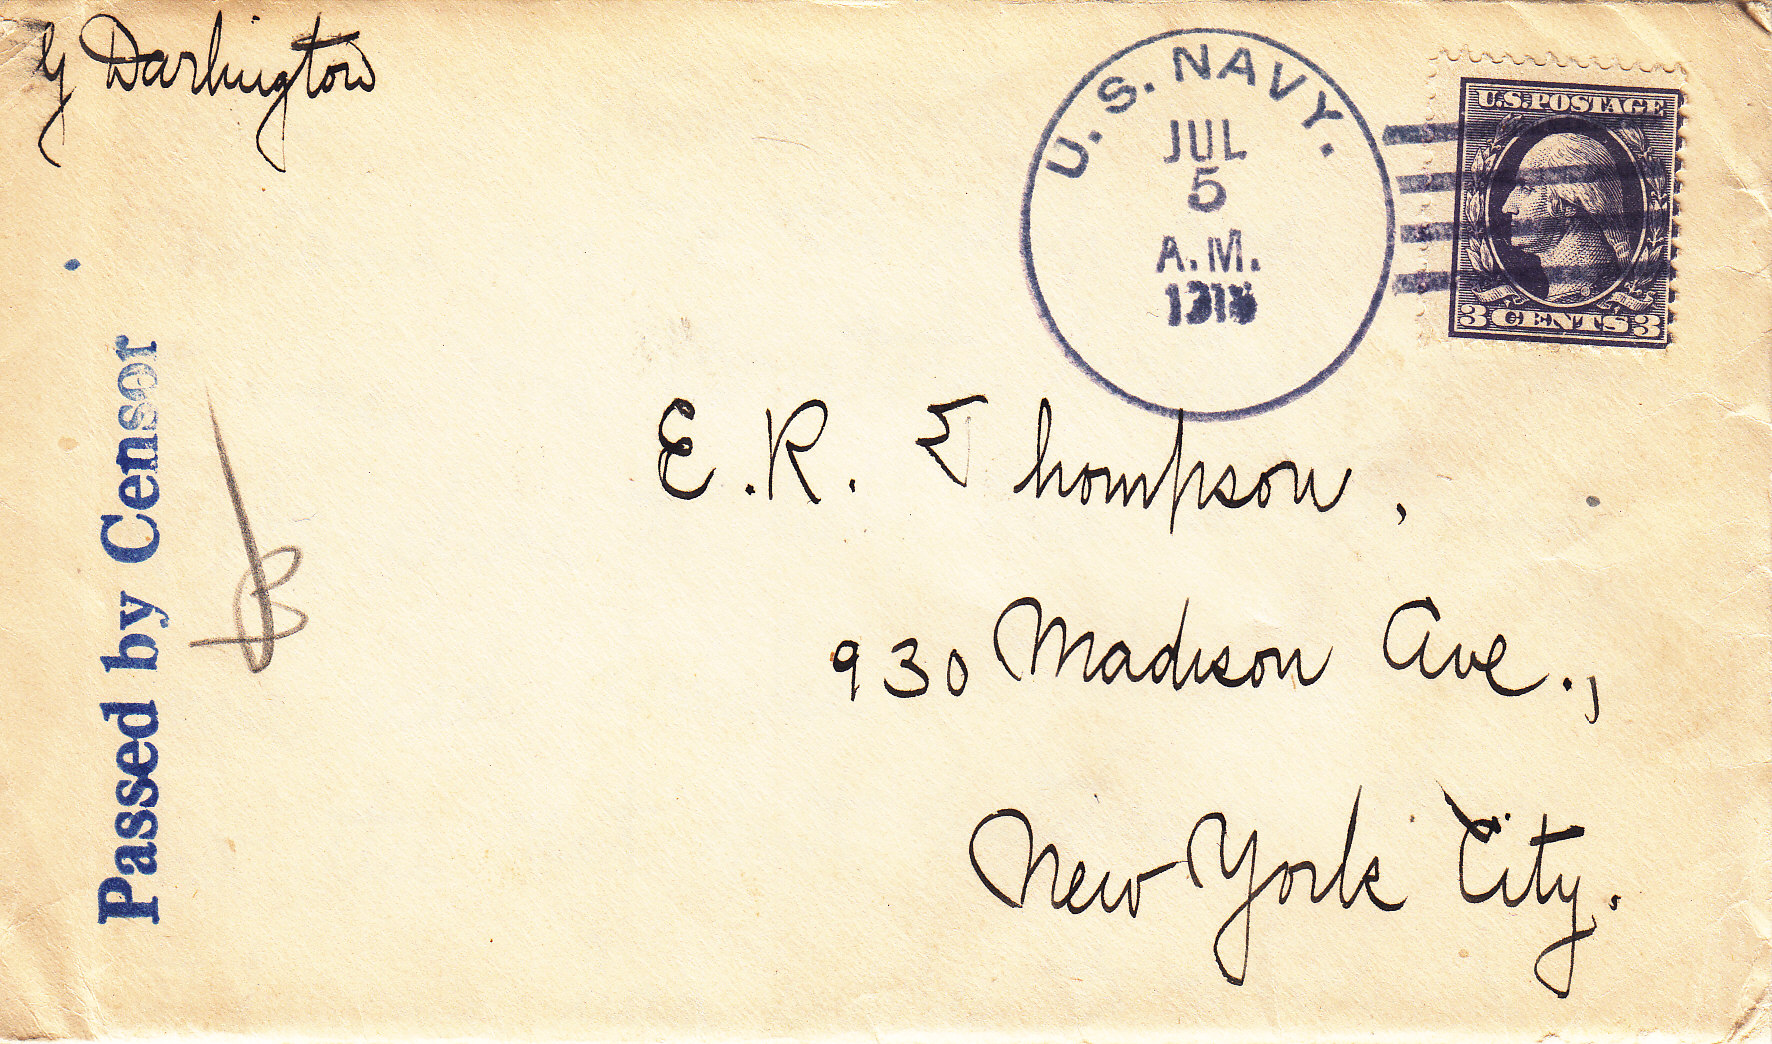 G Darlington
U.S. NAVY.
JUL
5
A.M.
U.S. POSTAGE
3 CENTS 3
Passed by Censor
E.R. Thompson,
930 Madison Ave.,
New York City.